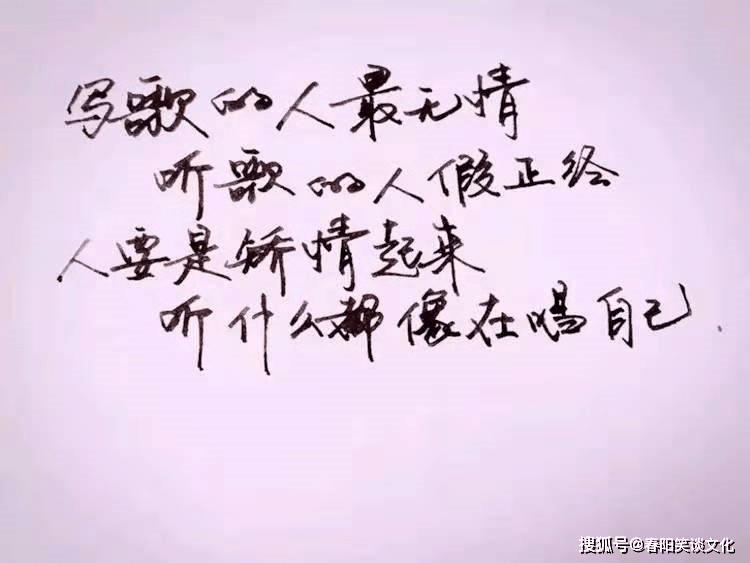 写歌的人最无情
听歌的人假正经
人要是矫情起来
听什么都像在唱自己.
搜狐号@春阳笑谈文化